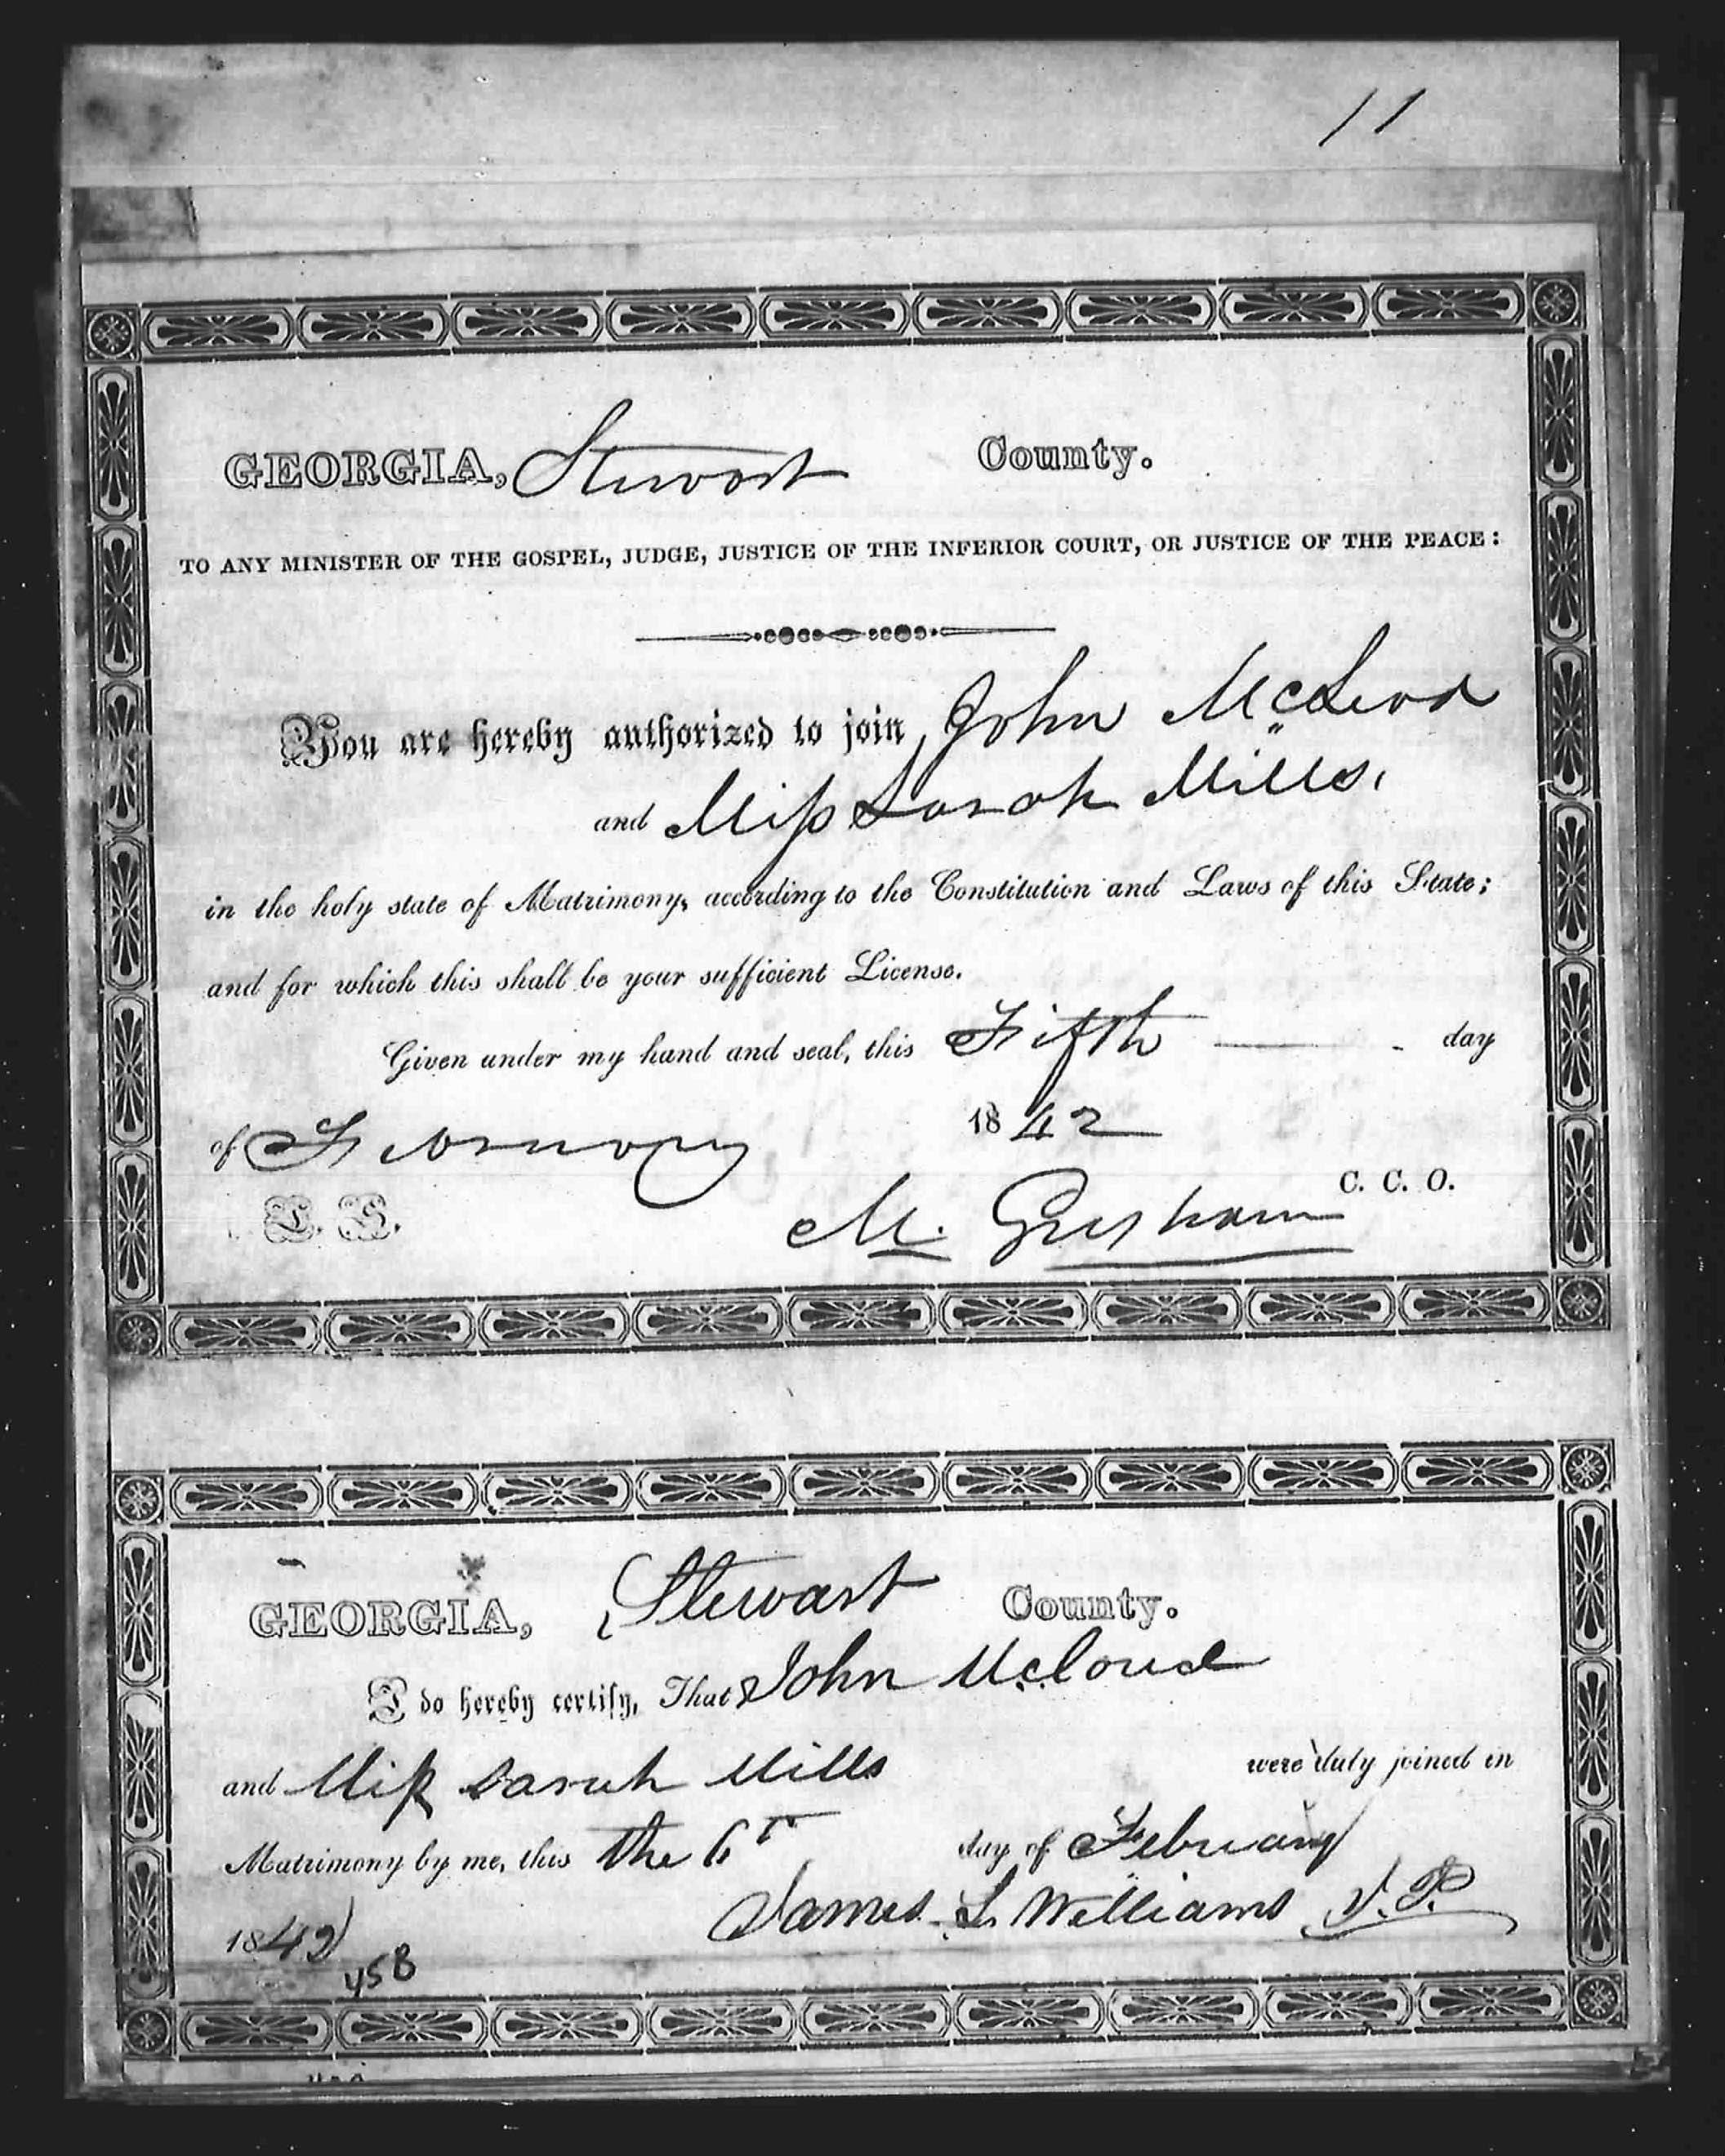 11
GEORGIA, Stewart County.
TO ANY MINISTER OF THE GOSPEL, JUDGE, JUSTICE OF THE INFERIOR COURT, OR JUSTICE OF THE PEACE:
You are hereby authorized to join John McLeod
and Miss Sarah Mills,
in the holy state of Matrimony, according to the Constitution and Laws of this State;
and for which this shall be your sufficient License.
Given under my hand and seal, this Fifth day
of February 1842
L. S. M. Gresham C. C. O.
GEORGIA, Stewart County.
I do hereby certify, That John McLoud
and Miss Sarah Mills were duly joined in
Matrimony by me, this the 6th day of February
1842 James L. Williams J.P.
458